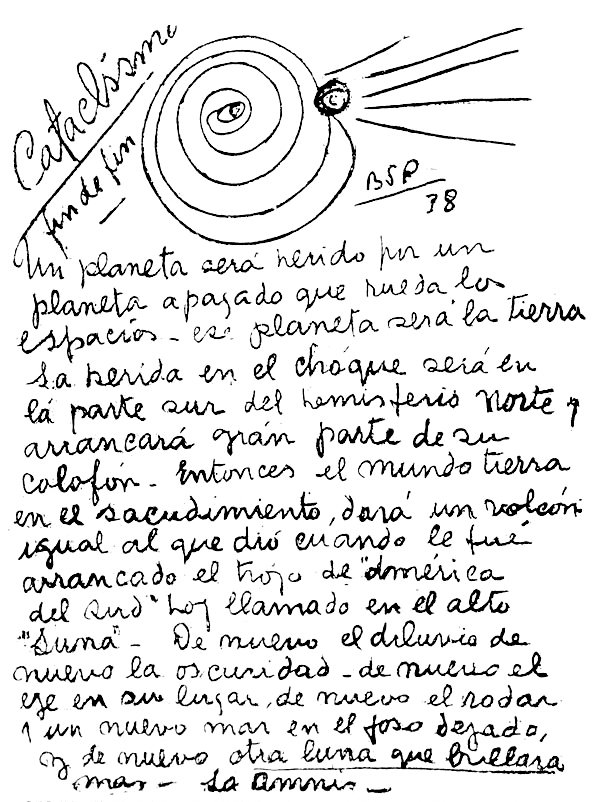 Cataclismo
fin de fin
BSP
38
Un planeta será herido por un
planeta apagado que rueda los
espacios - ese planeta será la tierra
La herida en el choque será en
lá parte sur del hemisferio norte y
arrancará grán parte de su
colofón - Entonces el mundo tierra
en el sacudimiento, dará un volcón
igual al que dió cuando le fué
arrancado el trojo de "América
del Sud" hoy llamado en el alto
"Luna" - De nuevo el diluvio de
nuevo la oscuridad - de nuevo el
eje en su lugar, de nuevo el rodar
y un nuevo mar en el foso dejado,
y de nuevo otra luna que brillara
mas - La